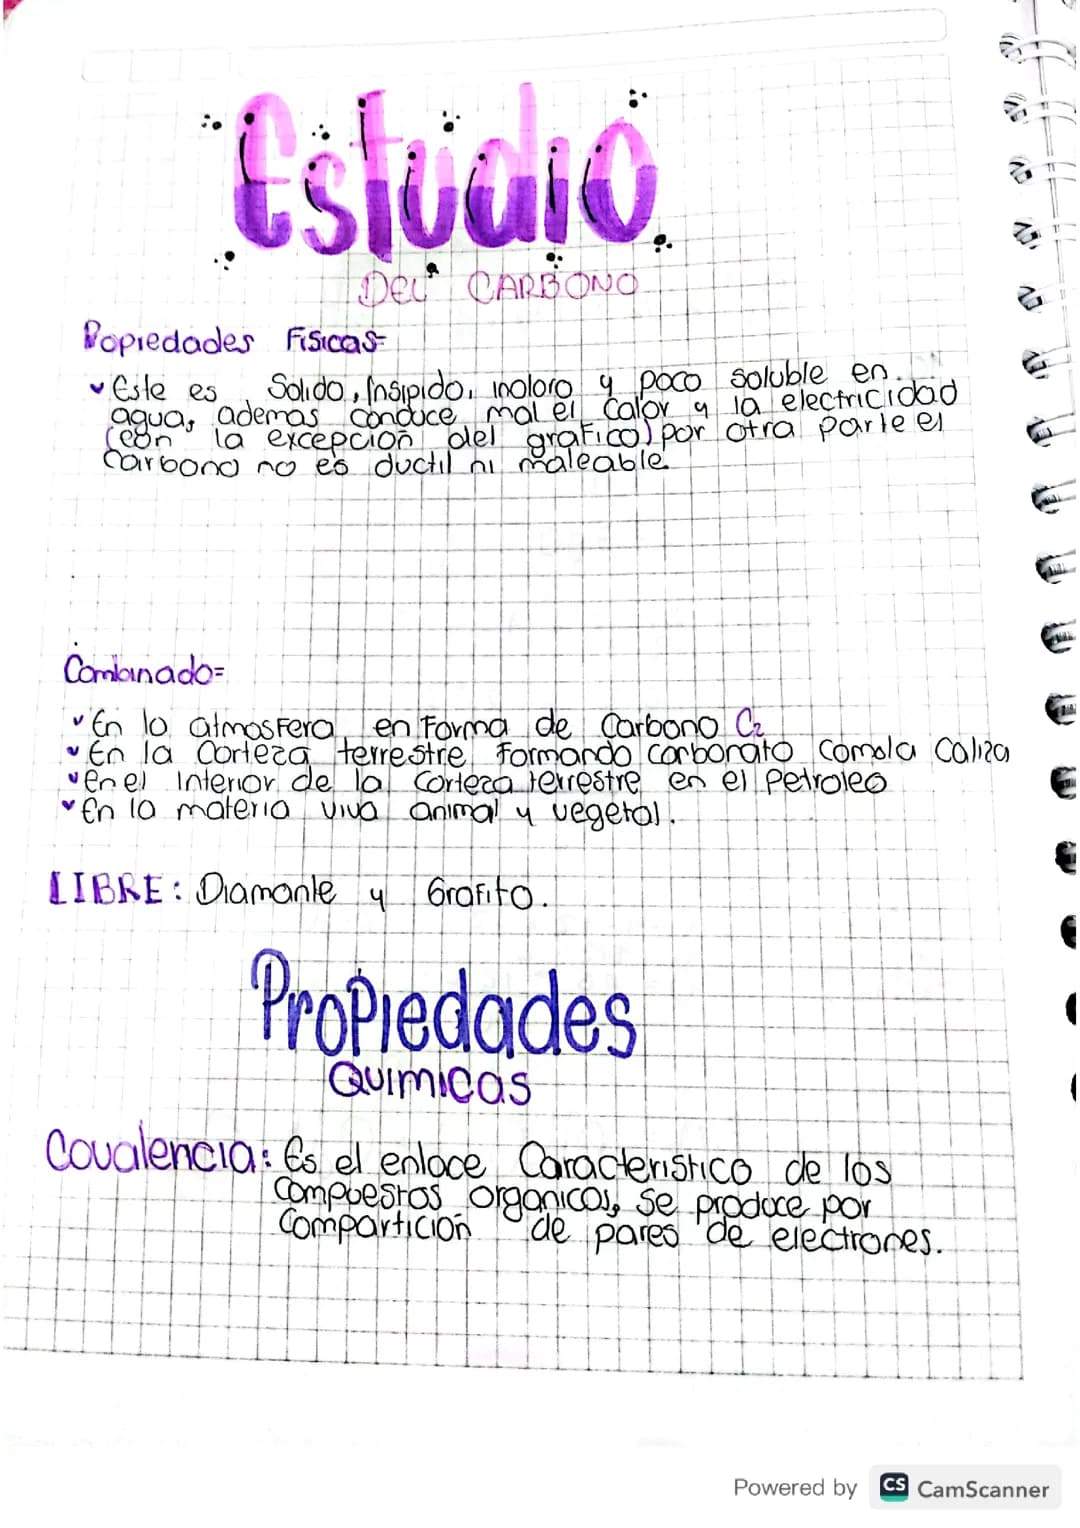 Estudio
DEL CARBONO
Popiedades Fisicas=
Este es Solido, Insipido, inoloro y poco soluble en
agua, ademas conduce mal el calor y la electricidad
(con la excepcion del grafico) por otra parte el
carbono no es ductil ni maleable
Combinado=
En la atmosfera en forma de Carbono C2
En la Corteza terrestre Formando carbonato Comola Caliza
en el Interior de la Corteza terrestre en el Petroleo
En la materia viva animal y vegetal.
LIBRE: Diamante y Grafito.
Propiedades
Quimicas
Covalencia: Es el enlace Caracteristico de los
Compuestos organicos, se produce por
Compartición de pares de electrones.
Powered by CS CamScanner